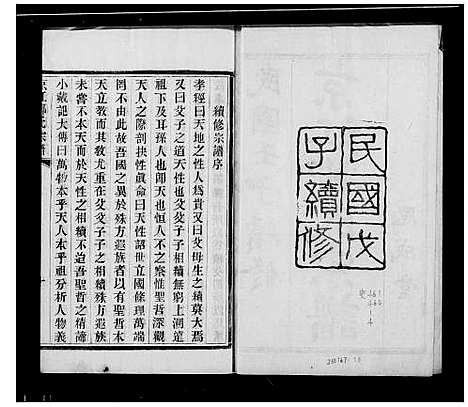 民國戊
子續修
續修宗譜序
孝經曰天地之性人為貴又曰父母生之續莫大焉
又曰父子之道天性也父父子子相續無窮上溯道
祖下及耳孫人也即天也恒人不之察惟聖哲深觀
天人之際剖抉性眞命曰天性詔世立國條理萬端
罔不由此故吾國之異於殊方遐族者以有聖哲本
天立教而其教尤重在父父子子相續殊方遐族亦
未嘗不本天而於天性之相續不迨吾聖哲之精諦
小戴記大傳曰萬物本乎天人本乎祖分析人物義